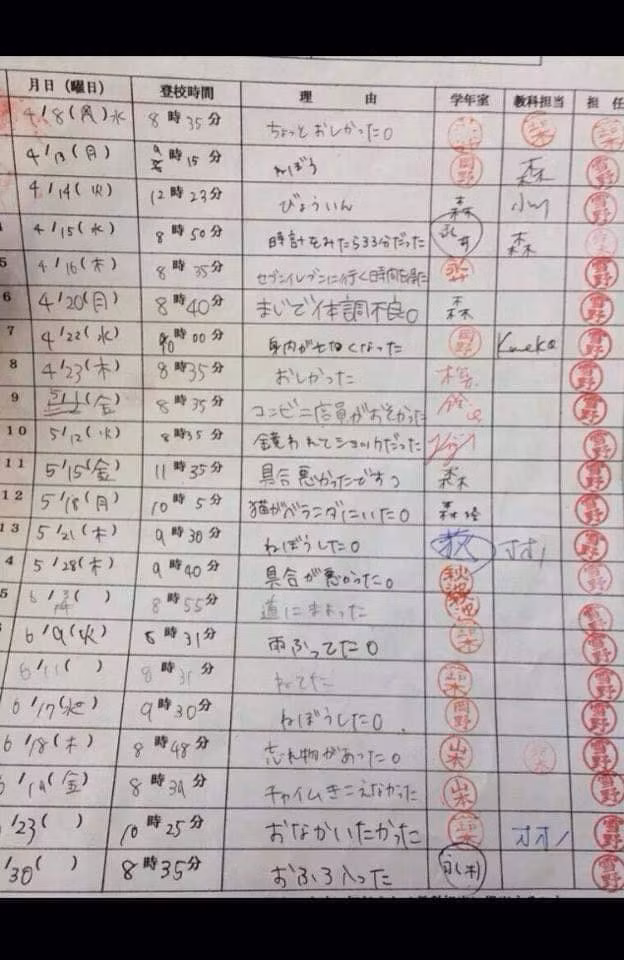 月日(曜日) 登校時間 理由 学年室 教科担当 担任
4/8(月)水 8時35分 ちょっとおしかった。
4/13(月) 9時15分 ねぼう 岡野 森 雪野
4/14(火) 12時23分 びょういん 森 小川 雪野
4/15(水) 8時50分 時計をみたら33分だった 永井 森
5 4/16(木) 8時35分 セブンイレブンに行く時間 雪野
6 4/20(月) 8時40分 まじで体調不良。 森 雪野
7 4/22(水) 10時00分 身内が亡くなった 岡野 Kaneko 雪野
8 4/23(木) 8時35分 おしかった 雪野
9 (金) 8時35分 コンビニ店員がおそかった 雪野
10 5/12(火) 8時35分 鏡われてショックだった 雪野
11 5/15(金) 11時35分 具合悪かったですっ 森 雪野
12 5/18(月) 10時5分 猫がベランダにいた。 雪野
13 5/21(木) 9時30分 ねぼうした。 雪野
4 5/28(木) 9時40分 具合が悪かった。 雪野
5 6/ 8時55分 道にまよった 雪野
6/9(火) 8時31分 雨ふってた。 雪野
6/11( ) 8時31分 ねてた 雪野
6/17(水) 9時30分 ねぼうした。 岡野 雪野
6/18(木) 8時48分 忘れ物があった。 山本 雪野
6/19(金) 8時39分 チャイムきこえなかった 山本 雪野
/23( ) 10時25分 おなかいたかった オオノ 雪野
/30( ) 8時35分 おふろ入った 雪野